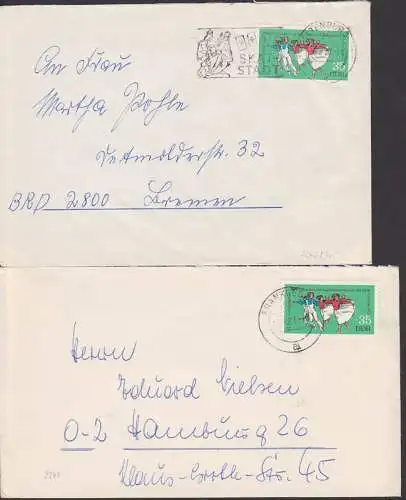 SKAT
STADT
35
DDR
An Frau
Martha Pohle
Detmolderstr. 32
BRD 2800 Bremen
35
DDR
Herrn
Eduard Bielsen
0-2 Hamburg 26
Klaus-Groth-Str. 45